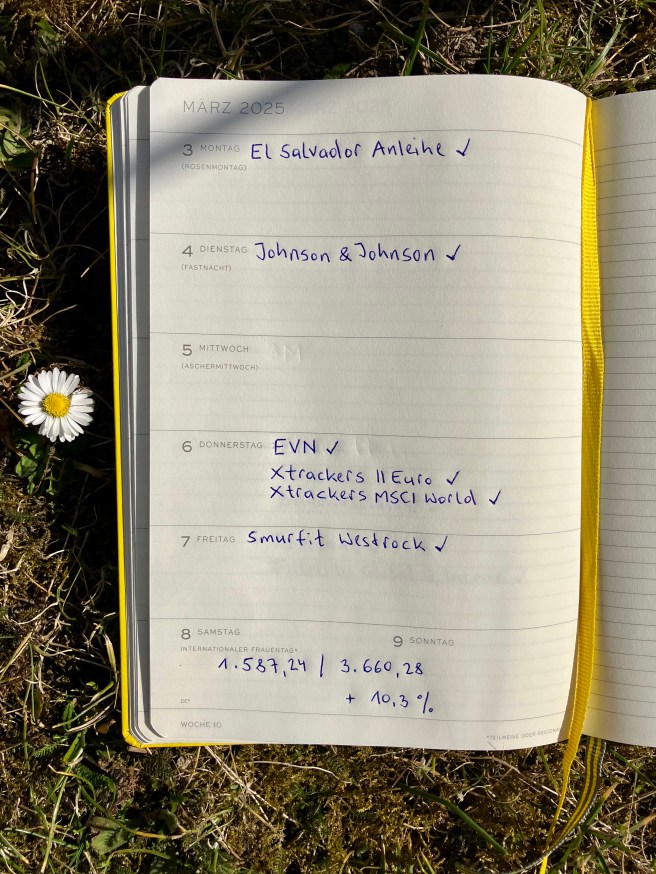 MÄRZ 2025
3 MONTAG El Salvador Anleihe ✓
(ROSENMONTAG)
4 DIENSTAG Johnson & Johnson ✓
(FASTNACHT)
5 MITTWOCH
(ASCHERMITTWOCH)
6 DONNERSTAG EVN ✓
Xtrackers II Euro ✓
Xtrackers MSCI World ✓
7 FREITAG Smurfit Westrock ✓
8 SAMSTAG 9 SONNTAG
INTERNATIONALER FRAUENTAG*
1.587,24 | 3.660,28
+ 10,3 %
DE*
WOCHE 10
*TEILWEISE ODER